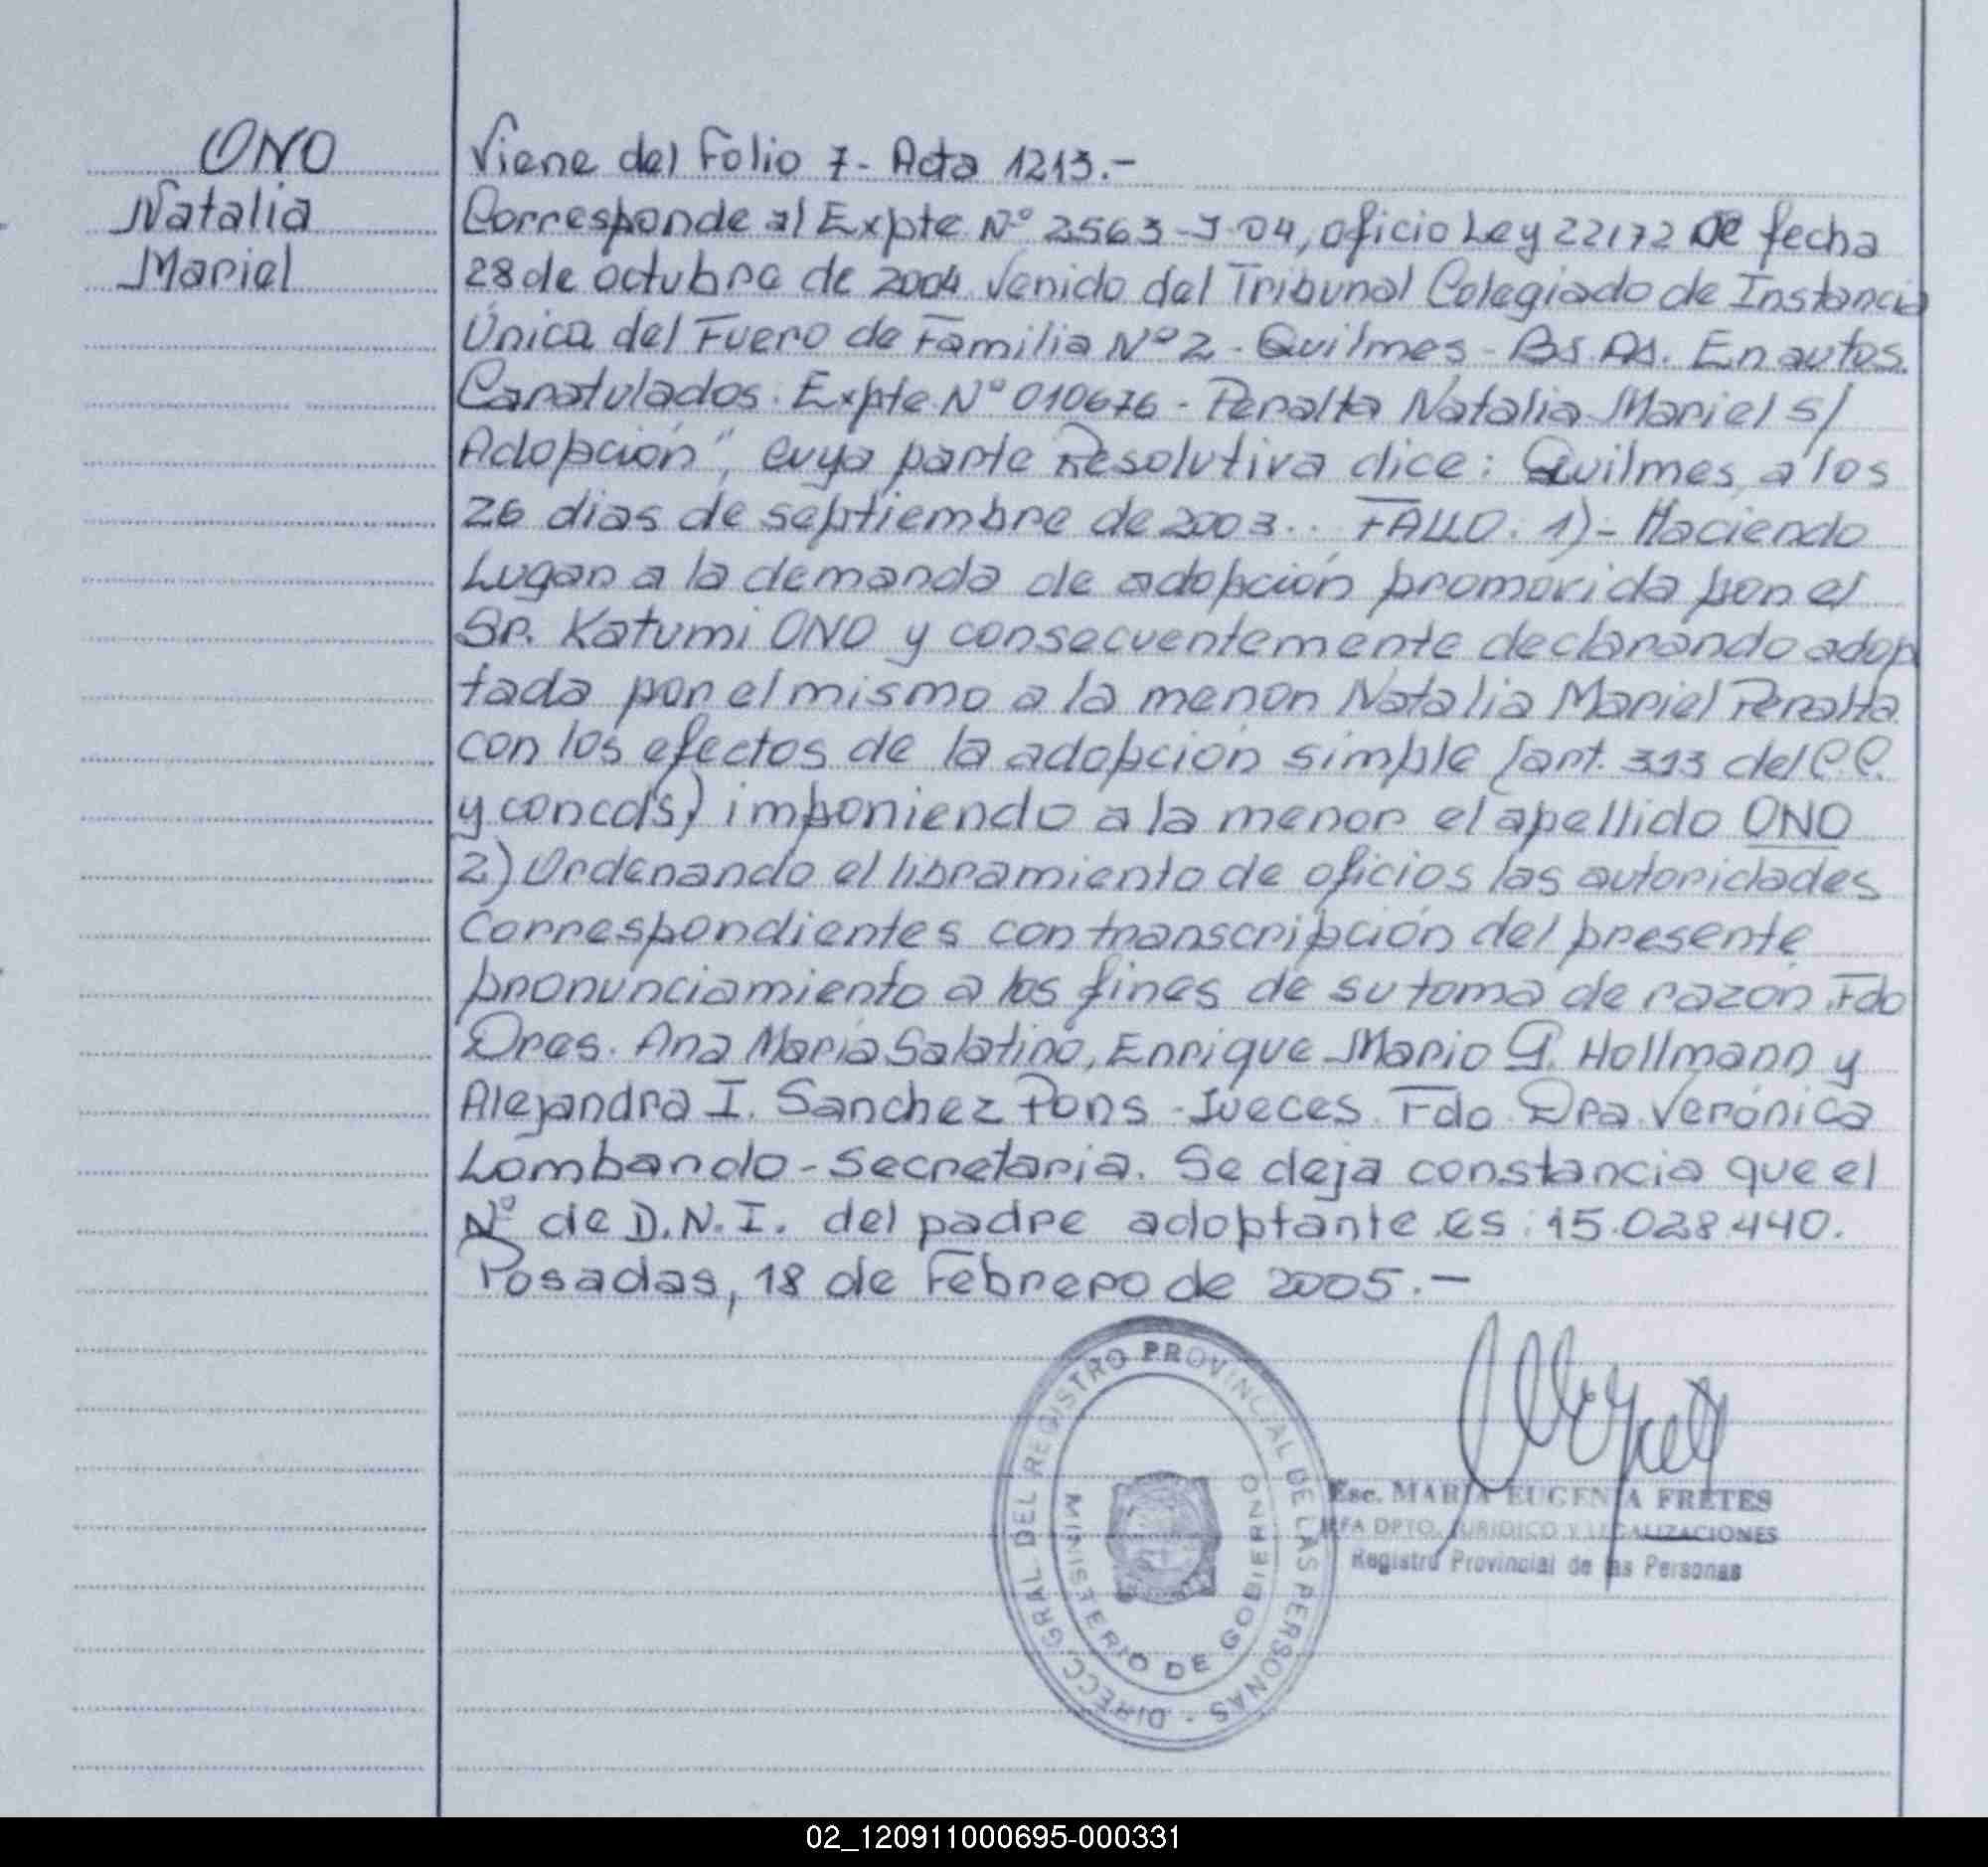 ONO
Natalia
Mariel
Viene del Folio 7- Acta 1213.-
Corresponde al Expte Nº 2563-J-04, oficio Ley 22172 de fecha
28 de octubre de 2004 venido del Tribunal Colegiado de Instancia
Única del Fuero de Familia Nº 2 - Quilmes - Bs. As. En autos
Caratulados: Expte Nº 010676 - Peralta Natalia Mariel s/
Adopción", cuya parte Resolutiva dice: Quilmes, a los
26 dias de septiembre de 2003.. FALLO: 1)- Haciendo
Lugar a la demanda de adopción promovida por el
Sr. Katumi ONO y consecuentemente declarando adop
tada por el mismo a la menor Natalia Mariel Peralta
con los efectos de la adopción simple (art. 313 del C.C.
y concds) imponiendo a la menor el apellido ONO
2) Ordenando el libramiento de oficios las autoridades
Correspondientes con transcripción del presente
pronunciamiento a los fines de su toma de razón Fdo
Dres. Ana María Salatino, Enrique Mario G. Hollmann y
Alejandra I. Sanchez Pons - Jueces. Fdo. Dra. Verónica
Lombardo - Secretaria. Se deja constancia que el
Nº de D.N.I. del padre adoptante es: 15.028.440.
Posadas, 18 de Febrero de 2005.-
DIRECC. GRAL DEL REGISTRO PROVINCIAL DE LAS PERSONAS -
MINISTERIO DE GOBIERNO
Esc. MARIA EUGENIA FRETES
JEFA DPTO. JURIDICO Y LEGALIZACIONES
Registro Provincial de las Personas
02_120911000695-000331